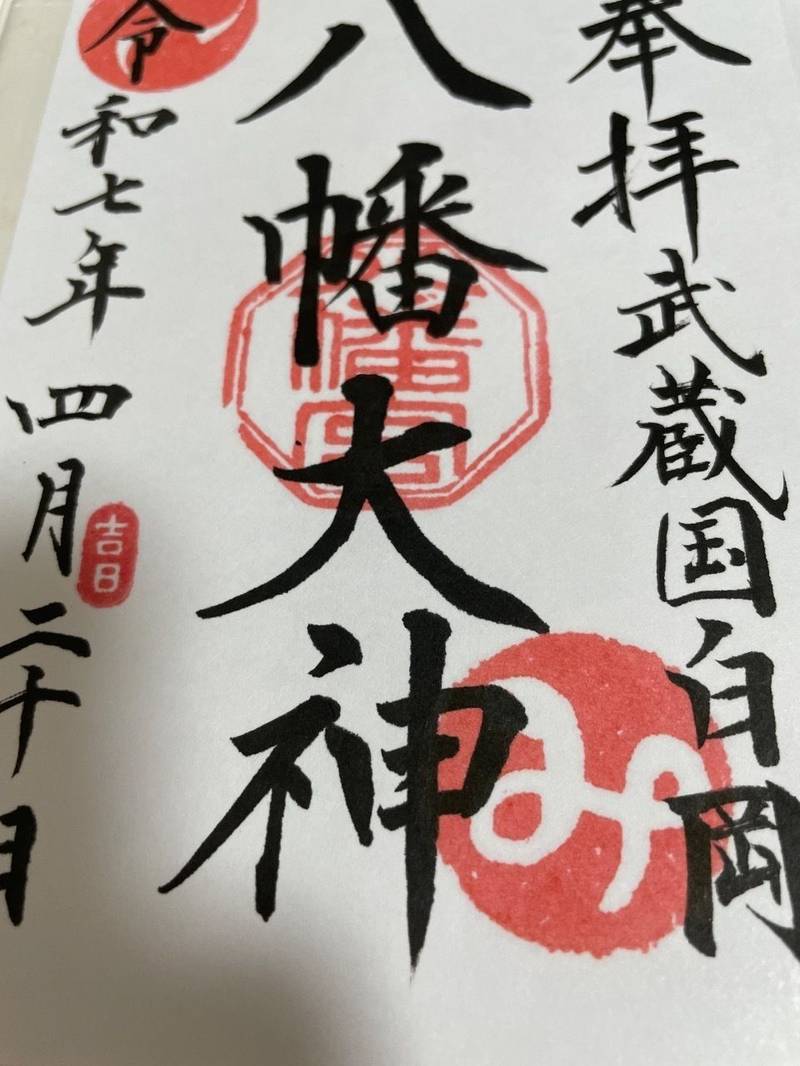 奉拝武蔵国白岡
八幡大神
令和七年四月二十日
吉日
み